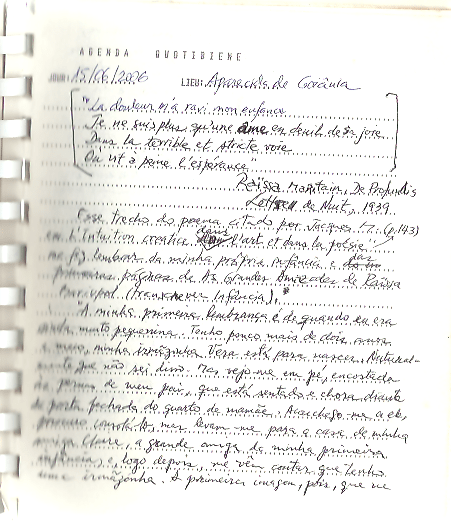 AGENDA QUOTIDIENE
JOUR: 15/06/2026 LIEU: Aparecida de Goiânia
"La douleur m'a ravi mon enfance
Je ne suis plus qu'une âme en deuil de sa joie
Dans la terrible et stricte voie
Où vit à peine l'espérance"
Raïssa Maritain, De Profundis
Lettre de Nuit, 1939
Esse trecho do poema citado por Jacques M. (p.143)
em L'intuition creatice dans l'art et dans la poésie"
me fez lembrar da minha própria infância e das
primeiras páginas de As Grandes Amizades de Raïssa
(transcrever Infância). *
A minha primeira lembrança é de quando eu era
ainda muito pequenina. Tenho pouco mais de dois anos
minha irmãzinha Vera está para nascer. Natural-
mente que não sei disso. Mas vejo-me em pé, encostada
às pernas de meu pai, que está sentado e chora diante
da porta fechada do quarto de mamãe. Aconchego-me a ele,
procuro consolá-lo, mas levam-me para a casa de minha
Claire, a grande amiga da minha primeira
infância, e, logo depois, me vêm contar que tenho
uma irmãzinha. A primeira imagem, pois, que me